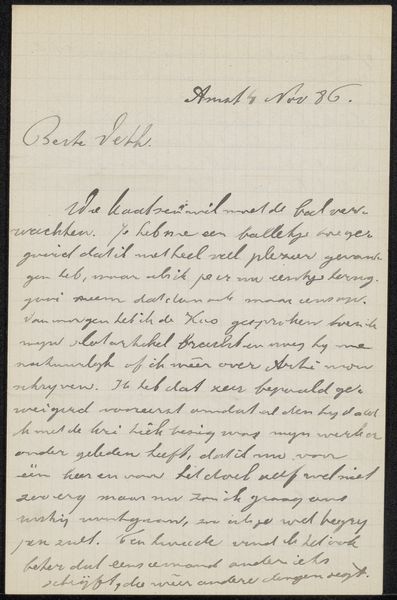 Amst 4 Nov 86.
Beste Veth.
Wie kaatsen wil moet de bal ver-
wachten. Je heb me een balletje toege
gooid dat ik met heel veel plezier gevan-
gen heb, maar als ik je er nu eentje terug
gooi neem dat dan ook maar eens op.
Van morgen heb ik de Koo gesproken toen ik
mijn slotartikel bracht en vroeg hij me
natuurlijk of ik wéer over Arti wou
schrijven. Ik heb dat zeer bepaald ge-
weigerd vooreerst omdat al den tijd dat
ik met de kritiek bezig was mijn werk er
onder geleden heeft, dat is nu voor
één keer en voor het doel zelf wel niet
zoo erg maar nu zou ik graag eens
rustig voortgaan, zoo als je wel begrij
pen zult. Ten tweede vind ik het ook
beter dat eens iemand anders iets
schrijft, die wéer andere dingen zegt.